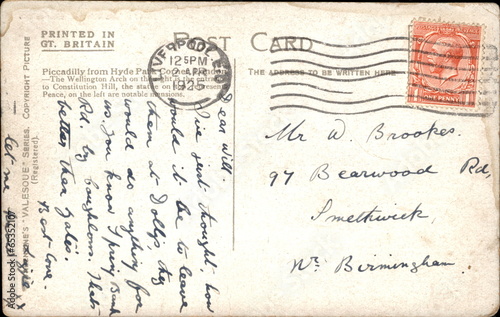 PRINTED IN
GT. BRITAIN
POST CARD
THE ADDRESS TO BE WRITTEN HERE
LIVERPOOL
125 PM
2 APR
1925
ONE PENNY
Piccadilly from Hyde Park Corner, London
—The Wellington Arch on the right is the entrance
to Constitution Hill, the statue on the
Peace, on the left are notable mansions.
"VALESQUE" SERIES. COPYRIGHT PICTURE
(Registered).
Dear Will.
I've just thought, how
would it be to leave
them at Dolly's. They
would do anything for
us you know Spring Bank
Rd. by Coughlons. That's
better than Yates.
Best love.
let me
Mr W. Brookes.
97 Bearwood Rd,
Smethwick,
Nr. Birmingham.
Adobe Stock | #653521